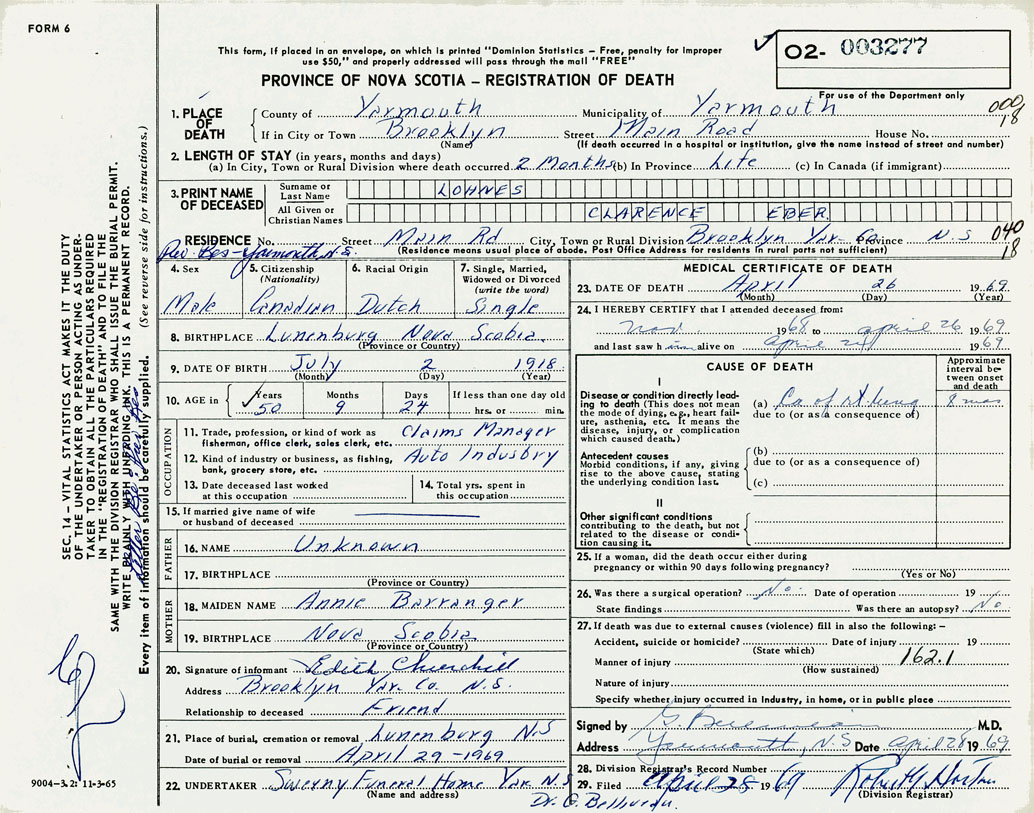 FORM 6
This form, if placed in an envelope, on which is printed "Dominion Statistics – Free, penalty for improper
use $50," and properly addressed will pass through the mail "FREE"
PROVINCE OF NOVA SCOTIA – REGISTRATION OF DEATH
✓ 02- 003277
For use of the Department only
1. PLACE OF DEATH
County of Yarmouth Municipality of Yarmouth 000 18
If in City or Town Brooklyn Street Main Road House No.
(Name) (If death occurred in a hospital or institution, give the name instead of street and number)
2. LENGTH OF STAY (in years, months and days)
(a) In City, Town or Rural Division where death occurred 2 Months (b) In Province Life (c) In Canada (if immigrant)
3. PRINT NAME OF DECEASED
Surname or Last Name LOHNES
All Given or Christian Names CLARENCE EBER.
RESIDENCE No. Street Main Rd City, Town or Rural Division Brooklyn Yar. Co. Province N.S 040 18
(Residence means usual place of abode. Post Office Address for residents in rural parts not sufficient)
Prev. Res- Yarmouth, N.S.
4. Sex Male
5. Citizenship (Nationality) Canadian
6. Racial Origin Dutch
7. Single, Married, Widowed or Divorced (write the word) Single
8. BIRTHPLACE Lunenburg Nova Scotia
(Province or Country)
9. DATE OF BIRTH July 2 1918
(Month) (Day) (Year)
10. AGE in Years Months Days If less than one day old
✓ 50 9 24 hrs. or min.
OCCUPATION
11. Trade, profession, or kind of work as fisherman, office clerk, sales clerk, etc. Claims Manager
12. Kind of industry or business, as fishing, bank, grocery store, etc. Auto Industry
13. Date deceased last worked at this occupation
14. Total yrs. spent in this occupation
15. If married give name of wife or husband of deceased
FATHER
16. NAME Unknown
17. BIRTHPLACE
(Province or Country)
MOTHER
18. MAIDEN NAME Annie Barranger
19. BIRTHPLACE Nova Scotia
(Province or Country)
20. Signature of informant Edith Churchill
Address Brooklyn Yar. Co. N.S.
Relationship to deceased Friend
21. Place of burial, cremation or removal Lunenburg N.S
Date of burial or removal April 29-1969
22. UNDERTAKER Sweeny Funeral Home Yar. N.S
(Name and address)
MEDICAL CERTIFICATE OF DEATH
23. DATE OF DEATH April 26 1969.
(Month) (Day) (Year)
24. I HEREBY CERTIFY that I attended deceased from:
Nov. 1968 to april 26 1969
and last saw him alive on april 24 1969
CAUSE OF DEATH
Approximate interval between onset and death
I
Disease or condition directly leading to death (This does not mean the mode of dying, e.g., heart failure, asthenia, etc. It means the disease, injury, or complication which caused death.)
(a) Ca of rt lung 8 mos
due to (or as a consequence of)
Antecedent causes
Morbid conditions, if any, giving rise to the above cause, stating the underlying condition last.
(b)
due to (or as a consequence of)
(c)
II
Other significant conditions contributing to the death, but not related to the disease or condition causing it.
25. If a woman, did the death occur either during
pregnancy or within 90 days following pregnancy?
(Yes or No)
26. Was there a surgical operation? No. Date of operation 19
State findings Was there an autopsy? No
27. If death was due to external causes (violence) fill in also the following: –
Accident, suicide or homicide? Date of injury 19
(State which)
Manner of injury 162.1
(How sustained)
Nature of injury
Specify whether injury occurred in Industry, in home, or in public place
Signed by G. M.D.
Address Yarmouth, N.S Date april 28 1969
28. Division Registrar's Record Number
29. Filed April 28 1969
(Division Registrar)
Dr. G. Belliveau.
SEC. 14 – VITAL STATISTICS ACT MAKES IT THE DUTY
OF THE UNDERTAKER OR PERSON ACTING AS UNDER-
TAKER TO OBTAIN ALL THE PARTICULARS REQUIRED
IN THE "REGISTRATION OF DEATH" AND TO FILE THE
SAME WITH THE DIVISION REGISTRAR WHO SHALL ISSUE THE BURIAL PERMIT.
WRITE PLAINLY WITH UNFADING INK. THIS IS A PERMANENT RECORD.
Every item of information should be carefully supplied. (See reverse side for instructions.)
9004-3.2: 11-3-65